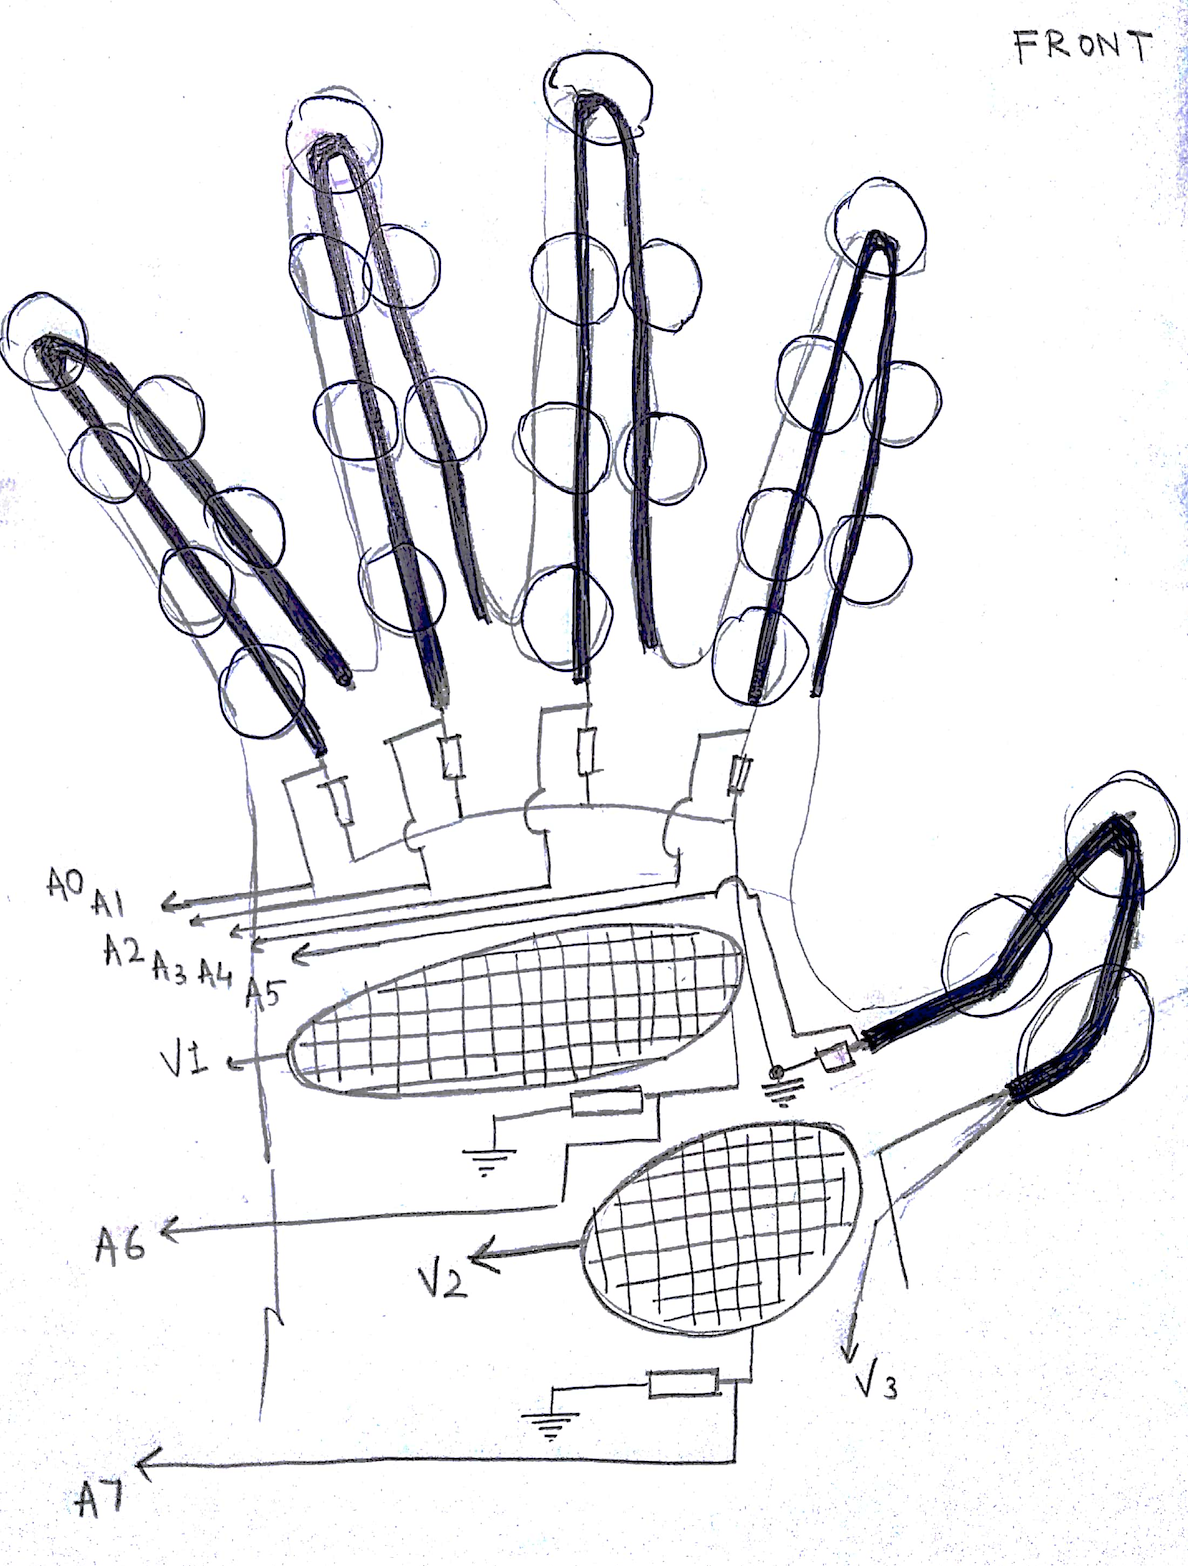 FRONT
A0
A1
A2
A3
A4
A5
V1
A6
V2
V3
A7